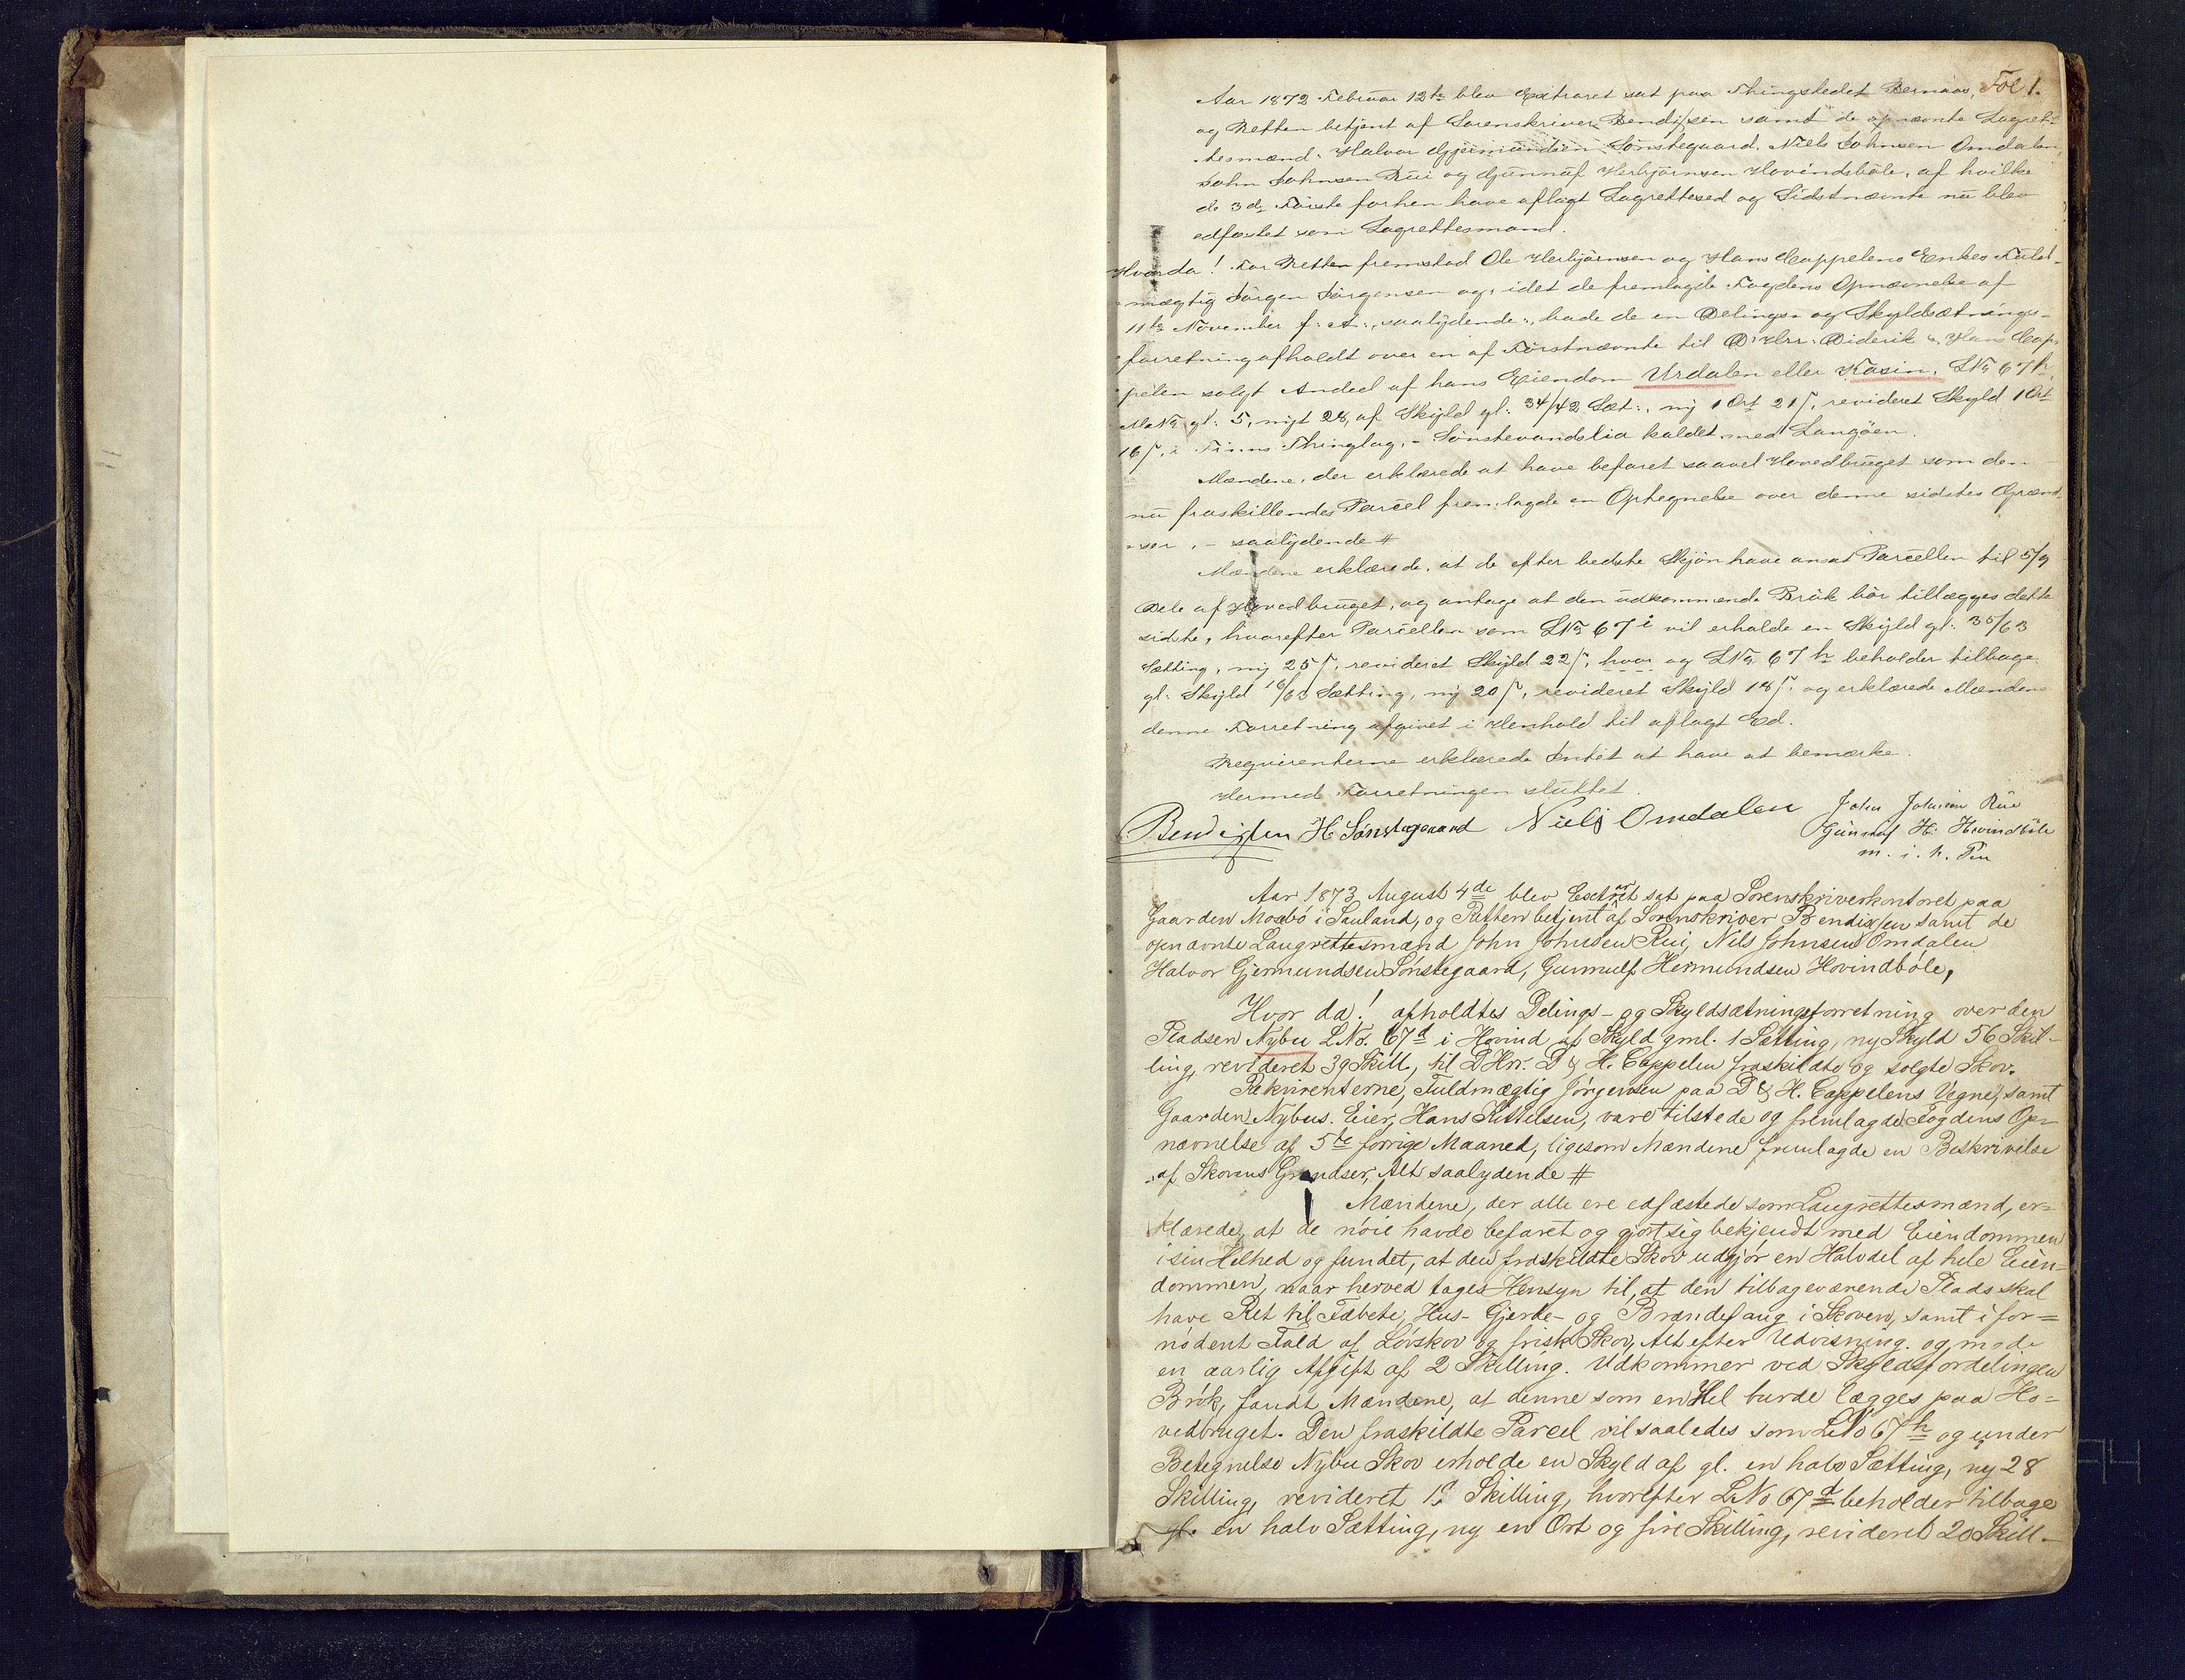 Fol 1.
Aar 1872 Februar 12te blev Extraret sat paa Thingstedet Bernaas,
og Retten betjent af Sorenskriver Bendixsen samt de opnævnte Lagret-
tesmænd: Halvor Gjermundsen Sønstegaard, Niels Johnsen Omdalen,
John Johnsen Rui og Gunnuf Herbjørnsen Hovindbøle, af hvilke
de 3de Første forhen have aflagt Lagrettesed og Sidstnævnte nu blev
edfæstet som Lagrettesmand.
Hvorda! For Retten fremstod Ole Herbjørnsen og Hans Cappelens Enkes Fuld-
mægtig Jørgen Jørgensen og, idet de fremlagde Fogdens Opnævnelse af
11te November f: A:, saalydende:, bade de en Delings- og Skyldsætnings-
forretning afholdt over en af Førstnævnte til D'Hrr: Diderik & Hans Cap-
pelen solgt Andeel af hans Eiendom Urdalen eller Kasin, LNo 67h,
MaNo gl: 5, nyt 28, af Skyld gl: 34/42 Sæt:, ny 1 Ort 21 ſ, revideret Skyld 1 Ort
16 ſ, i Tinns Thinglag, - Sønstevandslia kaldet med Langøen.
Mændene, der erklærede at have befaret saavel Hovedbruget som den
nu fraskillendes Parcel fremlagde en Optegnelse over denne sidstes Grænd-
ser, - saalydende #
Mændene erklærede, at de efter bedste Skjøn have ansat Parcellen til 5/9
Dele af Hovedbruget, og antage at den udkommende Brøk bør tillægges dette
sidste, hvorefter Parcellen som LNo 67i vil erholde en Skyld gl: 35/63
Sætting, ny 25 ſ, revideret Skyld 22 ſ, hvor og LNo 67h beholder tilbage
gl: Skyld 16/63 Sætting, ny 20 ſ, revideret Skyld 18 ſ. og erklærede Mændene
denne Forretning afgivet i Henhold til aflagt Ed.
Reqvirenterne erklærede Intet at have at bemærke.
Hermed Forretningen sluttet.
Bendixsen H Sønstegaard Niels Omdalen John Johnsen Rui
Gunnuf H. Hovindbøle
m. i. h. Pen
Aar 1873 August 4de blev Extraret sat paa Sorenskriverkontoret paa
Gaarden Mosebø i Sauland, og Retten betjent af Sorenskriver Bendixsen samt de
opnævnte Laugrettesmænd John Johnsen Rui, Nils Johnsen Omdalen
Halvor Gjermundsen Sønstegaard, Gunnulf Hermundsen Hovindbøle,
Hvor da! afholdtes Delings- og Skyldsætningsforretning over den
Pladsen Nybu LNo. 67d i Hovind af Skyld gml. 1 Sætting, ny Skyld 56 Skil-
ling, revideret 39 Skill., til DHrr. D & H. Cappelen fraskildte og solgte Skov.
Rekvirenterne, Fuldmægtig Jørgensen paa D & H. Cappelens Vegne, samt
Gaarden Nybus. Eier, Hans Kittilsen, vare tilstede og fremlagde Fogdens Op-
nævnelse af 5te forrige Maaned, ligesom Mændene fremlagde en Beskrivelse
af Skovens Grændser, Alt saalydende #
Mændene, der alle ere edfæstede som Laugrettesmænd, er-
klærede, at de nøie havde befaret og gjort sig bekjendt med Eiendommen
i sin Helhed og fundet, at den fraskildte Skov udgjør en Halvdel af hele Eien-
dommen, naar herved tages Hensyn til, at den tilbageværende Plads skal
have Ret til Fæbete, Hus- Gjerde- og Brændefang i Skoven, samt i for=
nødent Fald af Løvskov og frisk Skov, Alt efter Udvisning. og mode
en aarlig Afgift af 2 Skilling. Udkommer ved Skyldsfordelingen
Brøk, fandt Mændene, at denne som en Hel burde lægges paa Ho=
vedbruget. Den fraskildte Parcel vil saaledes som LNo 67k og under
Betegnelse Nybu Skov erholde en Skyld af gl. en halv Sætting, ny 28
Skilling, revideret 19 Skilling, hvorefter LNo 67d beholder tilbage
gl. en halv Sætting, ny en Ort og fire Skilling, revideret 20 Skill-